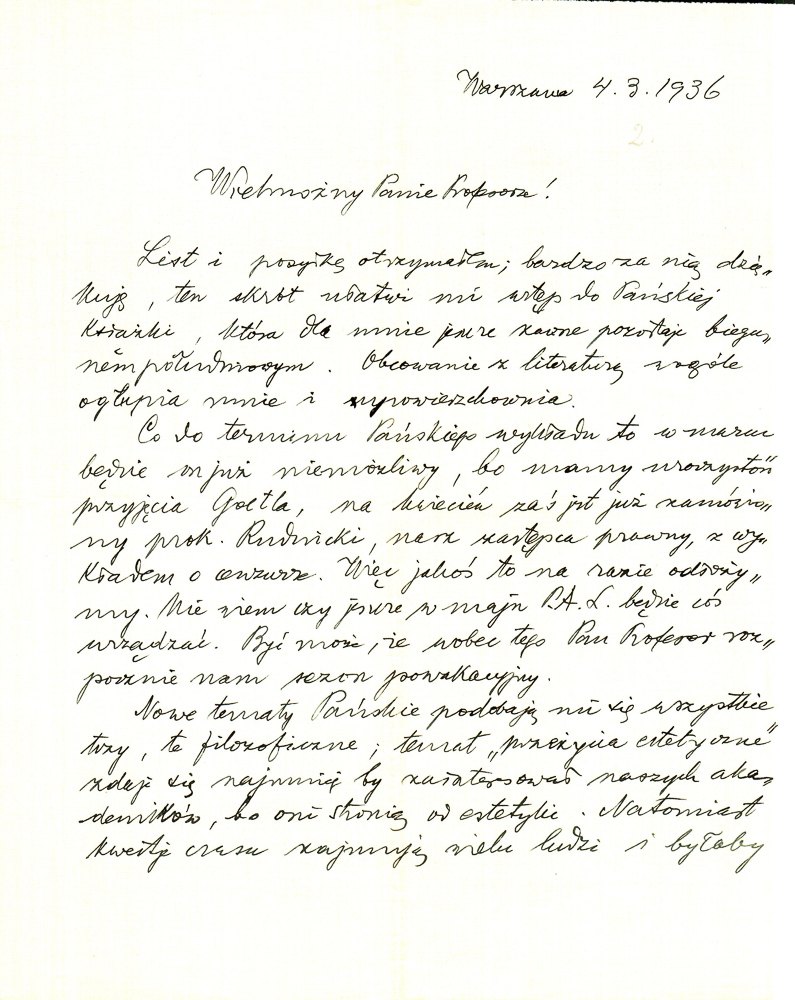 Warszawa 4.3.1936
2.
Wielmożny Panie Profesorze!
List i posyłkę otrzymałem; bardzo za nią dzię„
kuję, ten skrót ułatwi mi wstęp do Pańskiej
Książki, która dla mnie jeszcze zawsze pozostaje biegu„
nem południowym. Obcowanie z literaturą wogóle
ogłupia mnie i wypowierzchownia.
Co do terminu Pańskiego wykładu to w marcu
będzie on już niemożliwy, bo mamy uroczystość
przyjęcia Goetla, na kwiecień zaś jest już zamówio„
ny prok. Rudnicki, nasz zastępca prawny, z wy„
kładem o cenzurze. Więc jakoś to na razie odłoży„
my. Nie wiem czy jeszcze w maju P.A.L. będzie coś
urządzać. Być może, że wobec tego Pan Profesor roz„
pocznie nam sezon powakacyjny.
Nowe tematy Pańskie podobają mi się wszystkie
trzy, te filozoficzne; temat „przeżycia estetyczne"
zdaje się najmniej by zainteresował naszych aka„
demików, bo oni stronią od estetyki. Natomiast
kwestje czasu zajmują wielu ludzi i byłaby